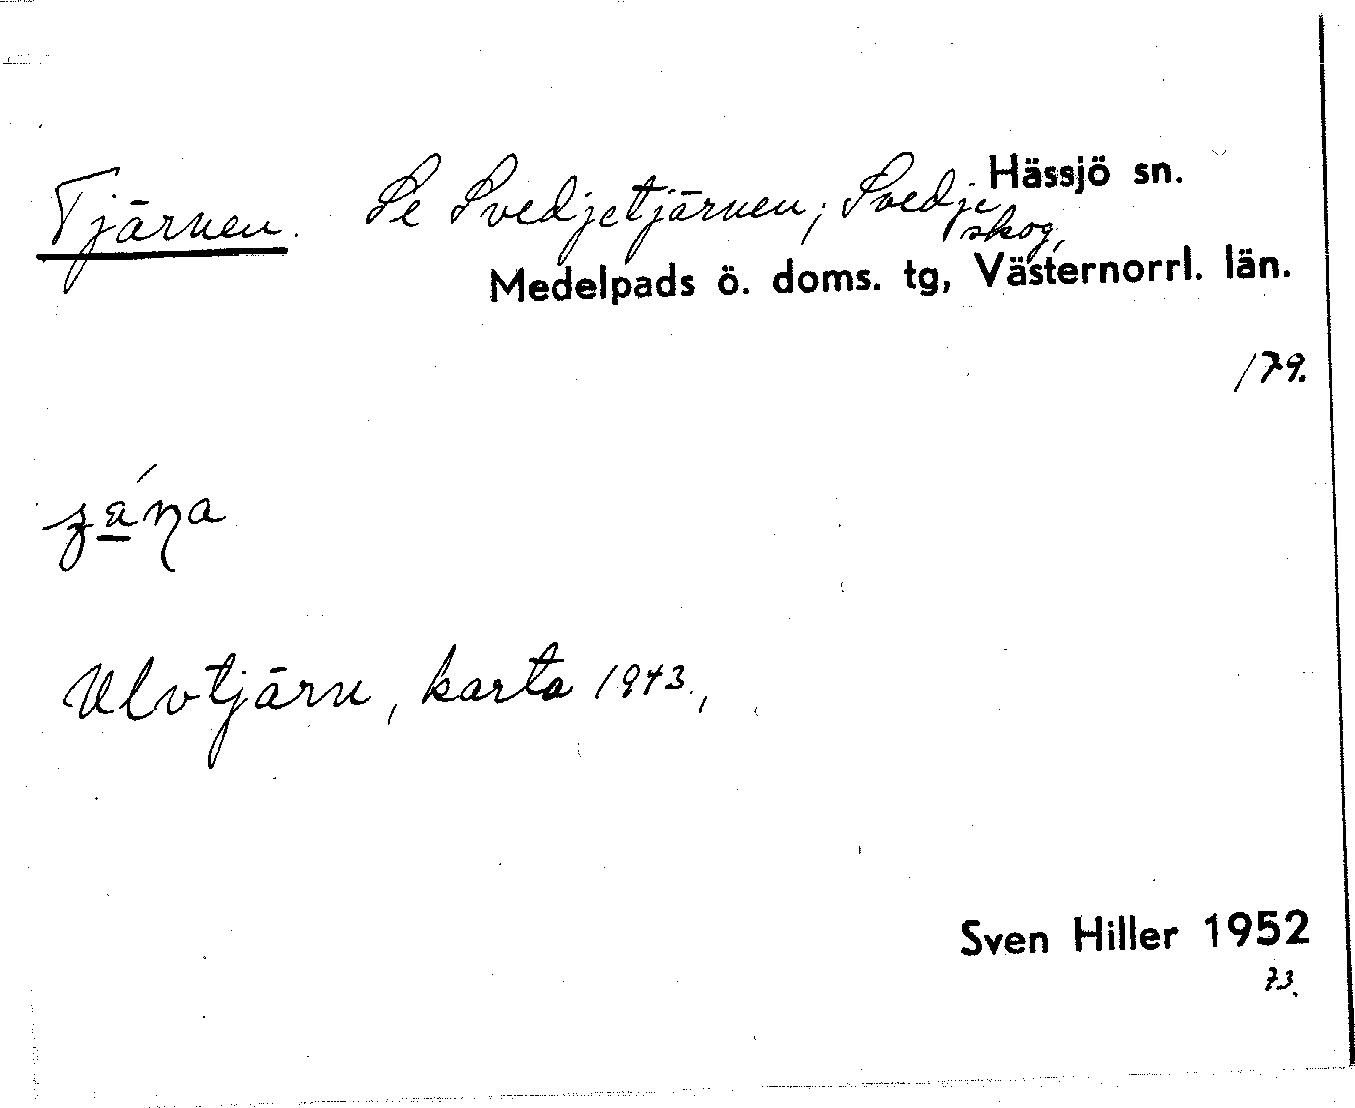 Tjärnen. Se Svedjetjärnen; Svedje Hässjö sn.
skog,
Medelpads ö. doms. tg, Västernorrl. län.
179.
Ulvtjärn, karta 1943.,
Sven Hiller 1952
73.